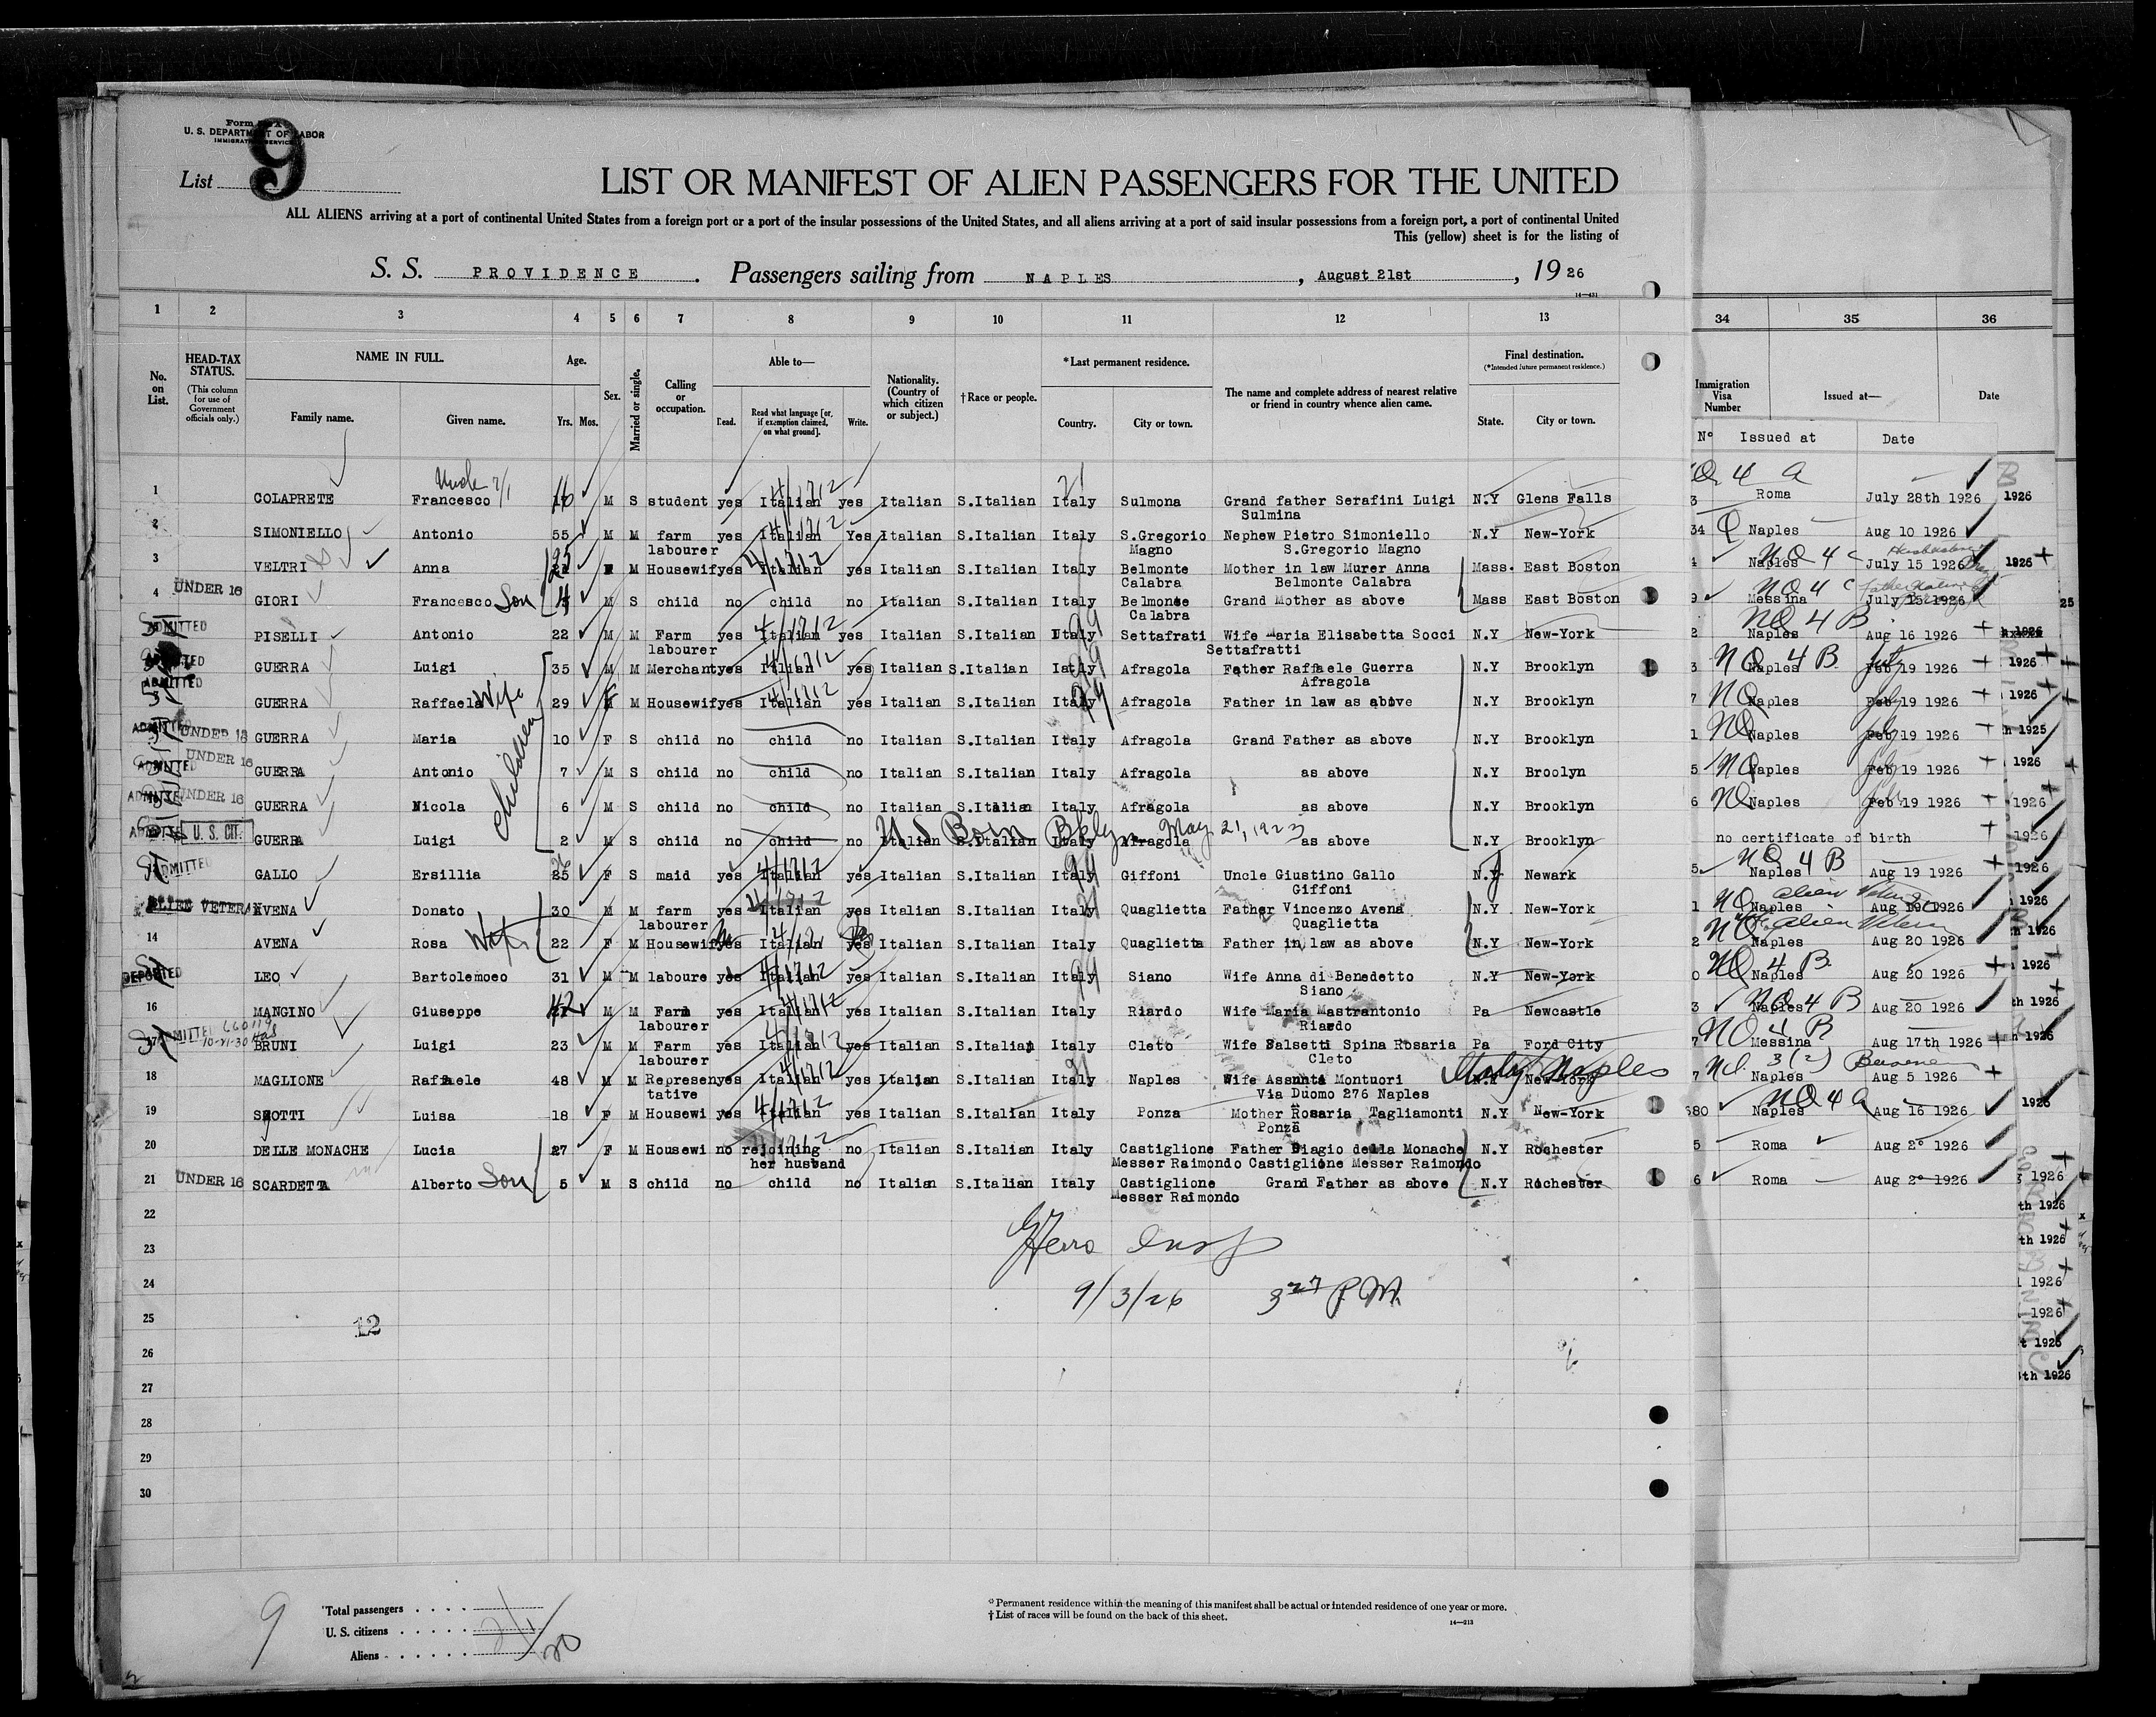 Form
U. S. DEPARTMENT OF LABOR
IMMIGRATION SERVICE
List 9
LIST OR MANIFEST OF ALIEN PASSENGERS FOR THE UNITED
ALL ALIENS arriving at a port of continental United States from a foreign port or a port of the insular possessions of the United States, and all aliens arriving at a port of said insular possessions from a foreign port, a port of continental United
This (yellow) sheet is for the listing of
S. S. PROVIDENCE. Passengers sailing from NAPLES, August 21st, 1926
14—431
1 2 3 4 5 6 7 8 9 10 11 12 13 34 35 36
No. on List.
HEAD-TAX STATUS.
(This column for use of Government officials only.)
NAME IN FULL.
Family name. Given name.
Age.
Yrs. Mos.
Sex.
Married or single.
Calling or occupation.
Able to—
Read. Read what language [or, if exemption claimed, on what ground]. Write.
Nationality. (Country of which citizen or subject.)
†Race or people.
*Last permanent residence.
Country. City or town.
The name and complete address of nearest relative or friend in country whence alien came.
Final destination.
(*Intended future permanent residence.)
State. City or town.
Immigration Visa Number Issued at— Date
Nº Issued at Date
1 COLAPRETE Francesco 16 M S student yes Italian yes Italian S.Italian Italy Sulmona Grand father Serafini Luigi N.Y Glens Falls 3 Roma July 28th 1926
Sulmina
2 SIMONIELLO Antonio 55 M M farm yes Italian Yes Italian S.Italian Italy S.Gregorio Nephew Pietro Simoniello N.Y New-York 34 Naples Aug 10 1926
labourer Magno S.Gregorio Magno
3 VELTRI Anna 25 M Housewif yes Italian yes Italian S.Italian Italy Belmonte Mother in law Murer Anna Mass. East Boston Naples July 15 1926
Calabra Belmonte Calabra
4 UNDER 16 GIORI Francesco Son 4 M S child no child no Italian S.Italian Italy Belmonte Grand Mother as above Mass East Boston 9 Messina July 15 1926
Calabra
ADMITTED PISELLI Antonio 22 M M Farm yes Italian yes Italian S.Italian Italy Settafrati Wife Maria Elisabetta Socci N.Y New-York 2 Naples Aug 16 1926
labourer Settafratti
GUERRA Luigi 35 M M Merchant yes Itlian yes Italian S.Italian Iatly Afragola Father Raffaele Guerra N.Y Brooklyn 3 NQ 4 B Naples Feb 19 1926
Afragola
ADMITTED GUERRA Raffaela Wife 29 F M Housewif yes Italian yes Italian S.Italian Italy Afragola Father in law as above N.Y Brooklyn 7 NQ Naples Feb 19 1926
UNDER 16 GUERRA Maria 10 F S child no child no Italian S.Italian Italy Afragola Grand Father as above N.Y Brooklyn 1 NQ Naples Feb 19 1926
children
ADMITTED UNDER 16 GUERRA Antonio 7 M S child no child no Italian S.Italian Italy Afragola as above N.Y Broolyn 5 NQ Naples Feb 19 1926
UNDER 16 GUERRA Nicola 6 M S child no child no Italian S.Italian Italy Afragola as above N.Y Brooklyn 6 NQ Naples Feb 19 1926
U. S. CIT. GUERRA Luigi 2 M S child no child no Italian S.Italian Italy Afragola as above N.Y Brooklyn no certificate of birth
U S Born Bkly May 21, 1923
ADMITTED GALLO Ersillia 25 F S maid yes Italian yes Italian S.Italian Italy Giffoni Uncle Giustino Gallo N.J Newark 5 NQ 4 B Naples Aug 19 1926
Giffoni
AVENA Donato 30 M M farm yes Italian yes Italian S.Italian Italy Quaglietta Father Vincenzo Avena N.Y New-York 1 NQ Naples Aug 1926
labourer Quaglietta
14 AVENA Rosa Wife 22 F M Housewif yes Italian yes Italian S.Italian Italy Quaglietta Father in law as above N.Y New-York 2 NQ Naples Aug 20 1926
DEPORTED LEO Bartolemoeo 31 M M laboure yes Italian yes Italian S.Italian Italy Siano Wife Anna di Benedetto N.Y New-York 0 NQ 4 B Naples Aug 20 1926
Siano
16 MANGINO Giuseppe 42 M M Farm yes Italian yes Italian S.Italian Italy Riardo Wife Maria Mastrantonio Pa Newcastle 3 NQ 4 B Naples Aug 20 1926
labourer Riardo
17 BRUNI Luigi 23 M M Farm yes Italian yes Italian S.Italian Italy Cleto Wife Salsetti Spina Rosaria Pa Ford City 7 NQ 4 B Messina Aug 17th 1926
labourer Cleto
18 MAGLIONE Raffaele 48 M M Represen yes Italian yes Italian S.Italian Italy Naples Wife Assunta Montuori N.Y New York 7 3(2) Naples Aug 5 1926
tative Via Duomo 276 Naples
Italy Naples
19 Luisa 18 F M Housewi yes Italian yes Italian S.Italian Italy Ponza Mother Rosaria Tagliamonti N.Y New-York 680 NQ 4 a Naples Aug 16 1926
Ponza
20 DELLE MONACHE Lucia 27 F M Housewi no rejoining no Italian S.Italian Italy Castiglione Father Biagio della Monache N.Y Rochester 5 Roma Aug 2° 1926
her husband Messer Raimondo Castiglione Messer Raimondo
21 UNDER 16 SCARDETTA Alberto Son 5 M S child no child no Italian S.Italian Italy Castiglione Grand Father as above N.Y Rochester 6 Roma Aug 2° 1926
Messer Raimondo
22
23
24
9/3/26 3 27 P.M.
25
12
26
27
28
29
30
9
Total passengers
U. S. citizens
Aliens
21/20
*Permanent residence within the meaning of this manifest shall be actual or intended residence of one year or more.
†List of races will be found on the back of this sheet.
14—213